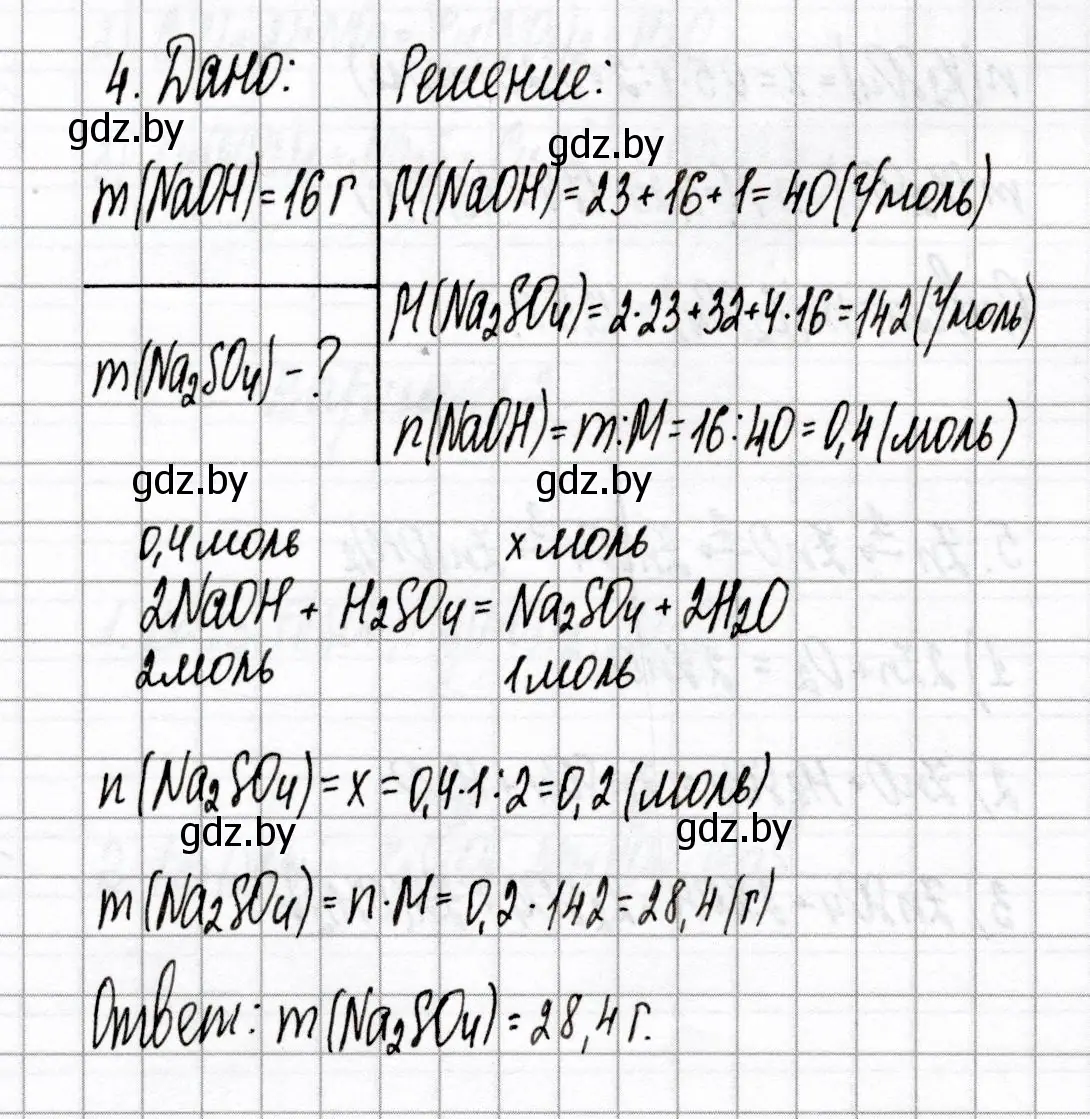 4. Дано:
gdz.by
m(NaOH)=16 г
m(Na₂SO₄) - ?
gdz.by
Решение:
gdz.by
M(NaOH)=23+16+1=40(г/моль)
M(Na₂SO₄)=2·23+32+4·16=142(г/моль)
n(NaOH)=m:M=16:40=0,4(моль)
gdz.by
0,4 моль x моль
2NaOH + H₂SO₄ = Na₂SO₄ + 2H₂O
2 моль 1 моль
n(Na₂SO₄)=x=0,4·1:2=0,2(моль)
gdz.by gdz.by
m(Na₂SO₄)=n·M=0,2·142=28,4(г)
Ответ: m(Na₂SO₄)=28,4 г.